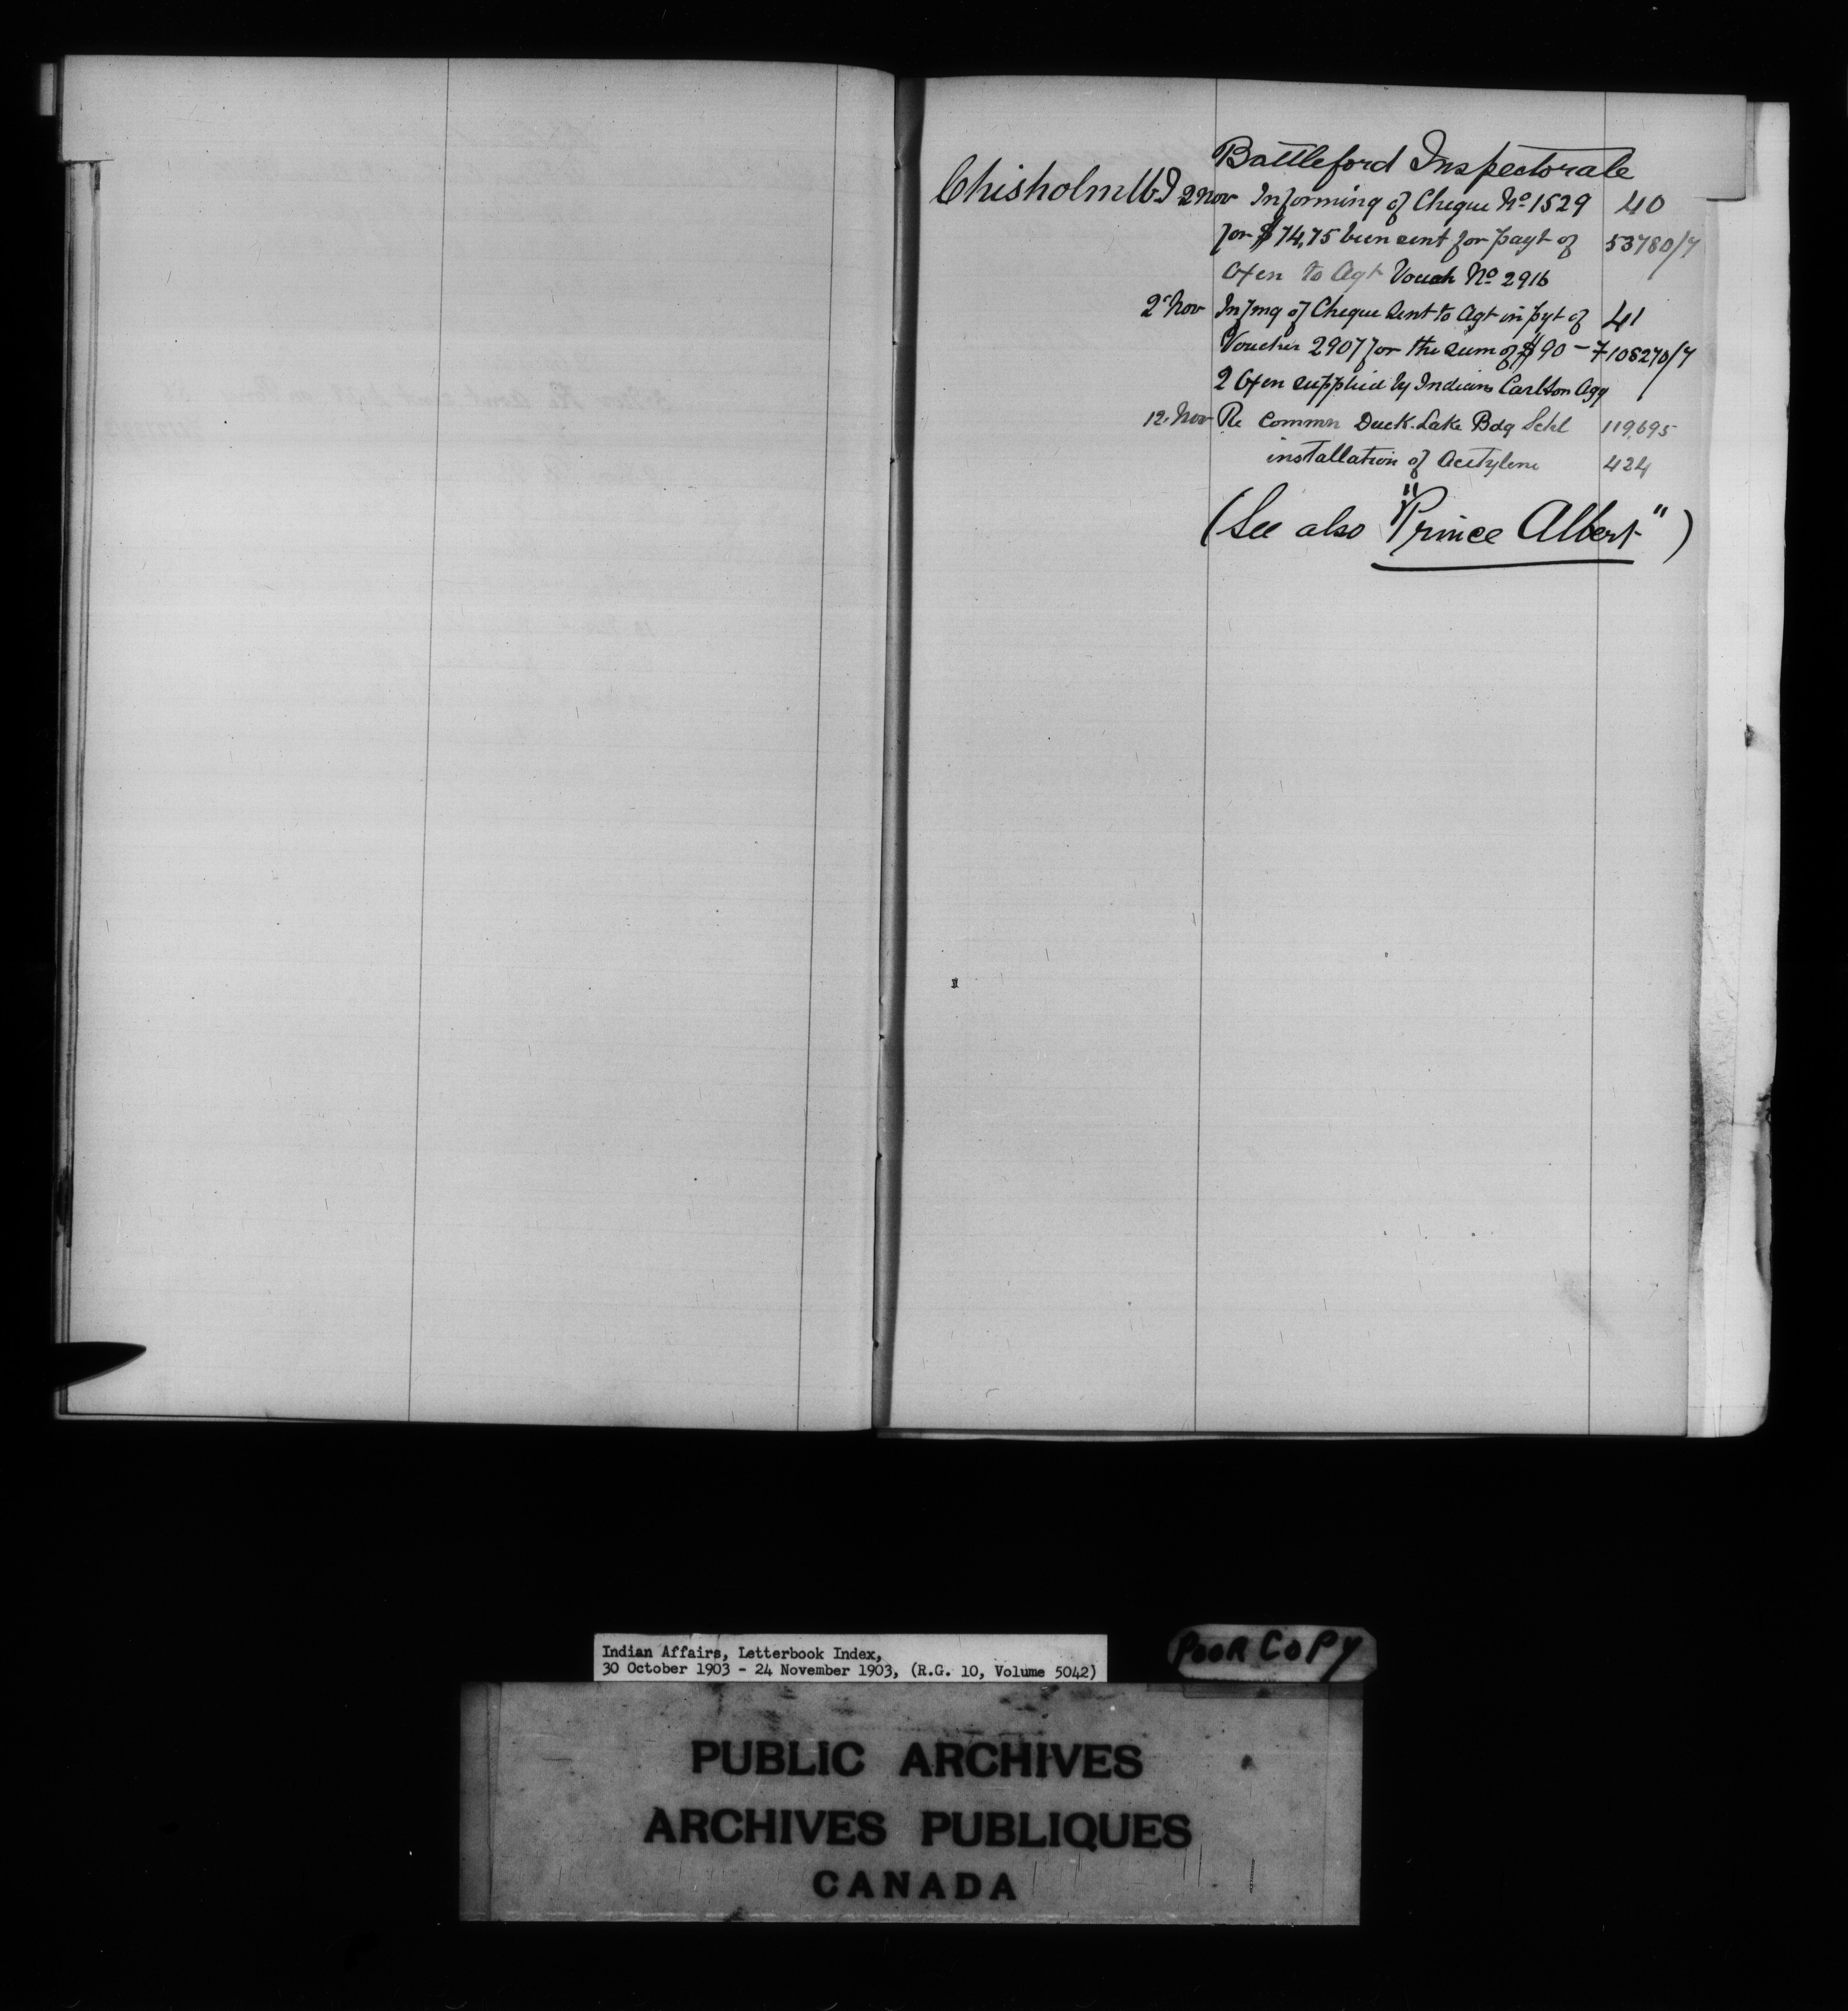 Battleford Inspectorate
Chisholm W.J 2 Nov Informing of Cheque No 1529 40
for $74,75 been sent for payt of 53780/7
Oxen to Agt Vouch No 2916
2" Nov Infmg of Cheque sent to Agt in pyt of 41
Voucher 2907 for the sum of $90 - 7 108270/7
2 Oxen supplied by Indians Carlton Agy
12. Nov Re Common Duck. Lake Bdg Schl 119,695
installation of Acetylene 424
(See also "Prince Albert")
Indian Affairs, Letterbook Index,
30 October 1903 - 24 November 1903, (R.G. 10, Volume 5042)
POOR COPY
PUBLIC ARCHIVES
ARCHIVES PUBLIQUES
CANADA